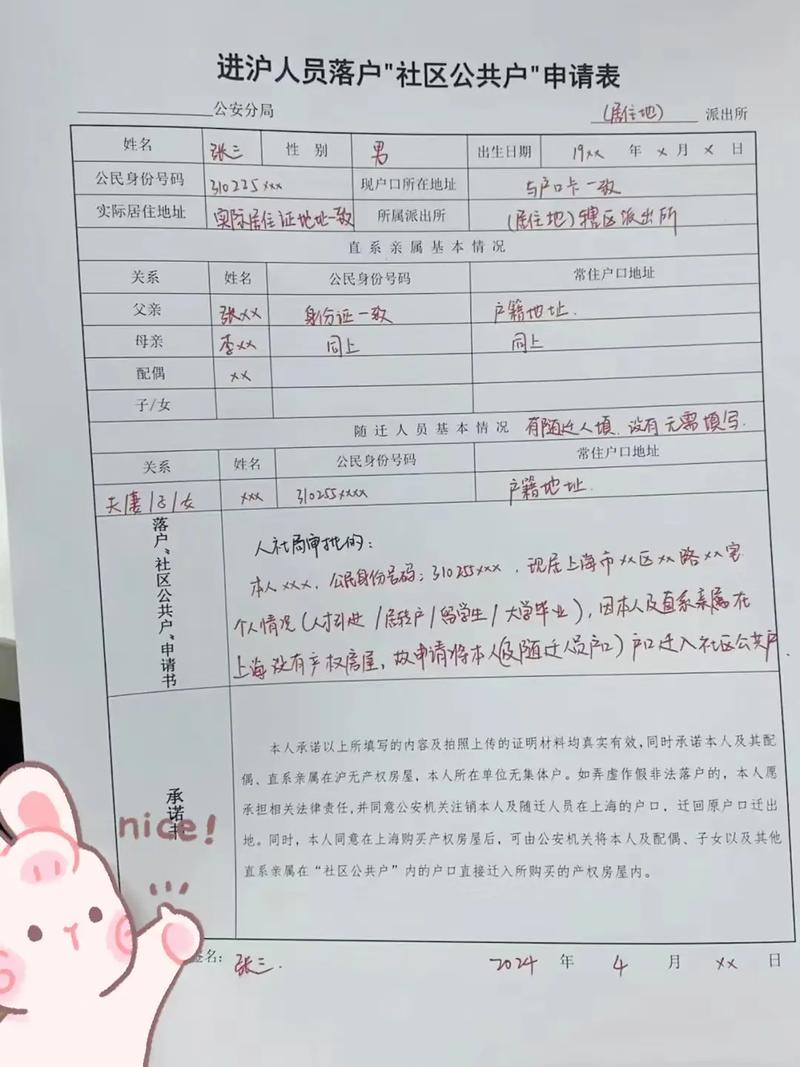 进沪人员落户"社区公共户"申请表
公安分局 (居住地) 派出所
姓名 张三 性别 男 出生日期 19xx 年 x 月 x 日
公民身份号码 310225xxx 现户口所在地址 与户口卡一致
实际居住地址 实际居住证地址一致 所属派出所 (居住地)辖区派出所
直系亲属基本情况
关系 姓名 公民身份号码 常住户口地址
父亲 张xx 身份证一致 户籍地址.
母亲 李xx 同上 同上
配偶 xx
子/女
随迁人员基本情况 有随迁人填.没有无需填写.
关系 姓名 公民身份号码 常住户口地址
夫/妻/子/女 xxx 310255xxxx 户籍地址.
落户"社区公共户"申请书
人社局审批的:
本人xxx,公民身份号码:310255xxx,现居上海市xx区xx路xx室
个人情况(人才引进/居转户/留学生/大学毕业),因本人及直系亲属在
上海没有产权房屋,故申请将本人(及随迁人员户口)户口迁入社区公共户.
承诺书
本人承诺以上所填写的内容及拍照上传的证明材料均真实有效,同时承诺本人及其配
偶、直系亲属在沪无产权房屋,本人所在单位无集体户。如弄虚作假非法落户的,本人愿
承担相关法律责任,并同意公安机关注销本人及随迁人员在上海的户口,迁回原户口迁出
地。同时,本人同意在上海购买产权房屋后,可由公安机关将本人及配偶、子女以及其他
直系亲属在"社区公共户"内的户口直接迁入所购买的产权房屋内。
nice!
签名: 张三. 2024 年 4 月 xx 日